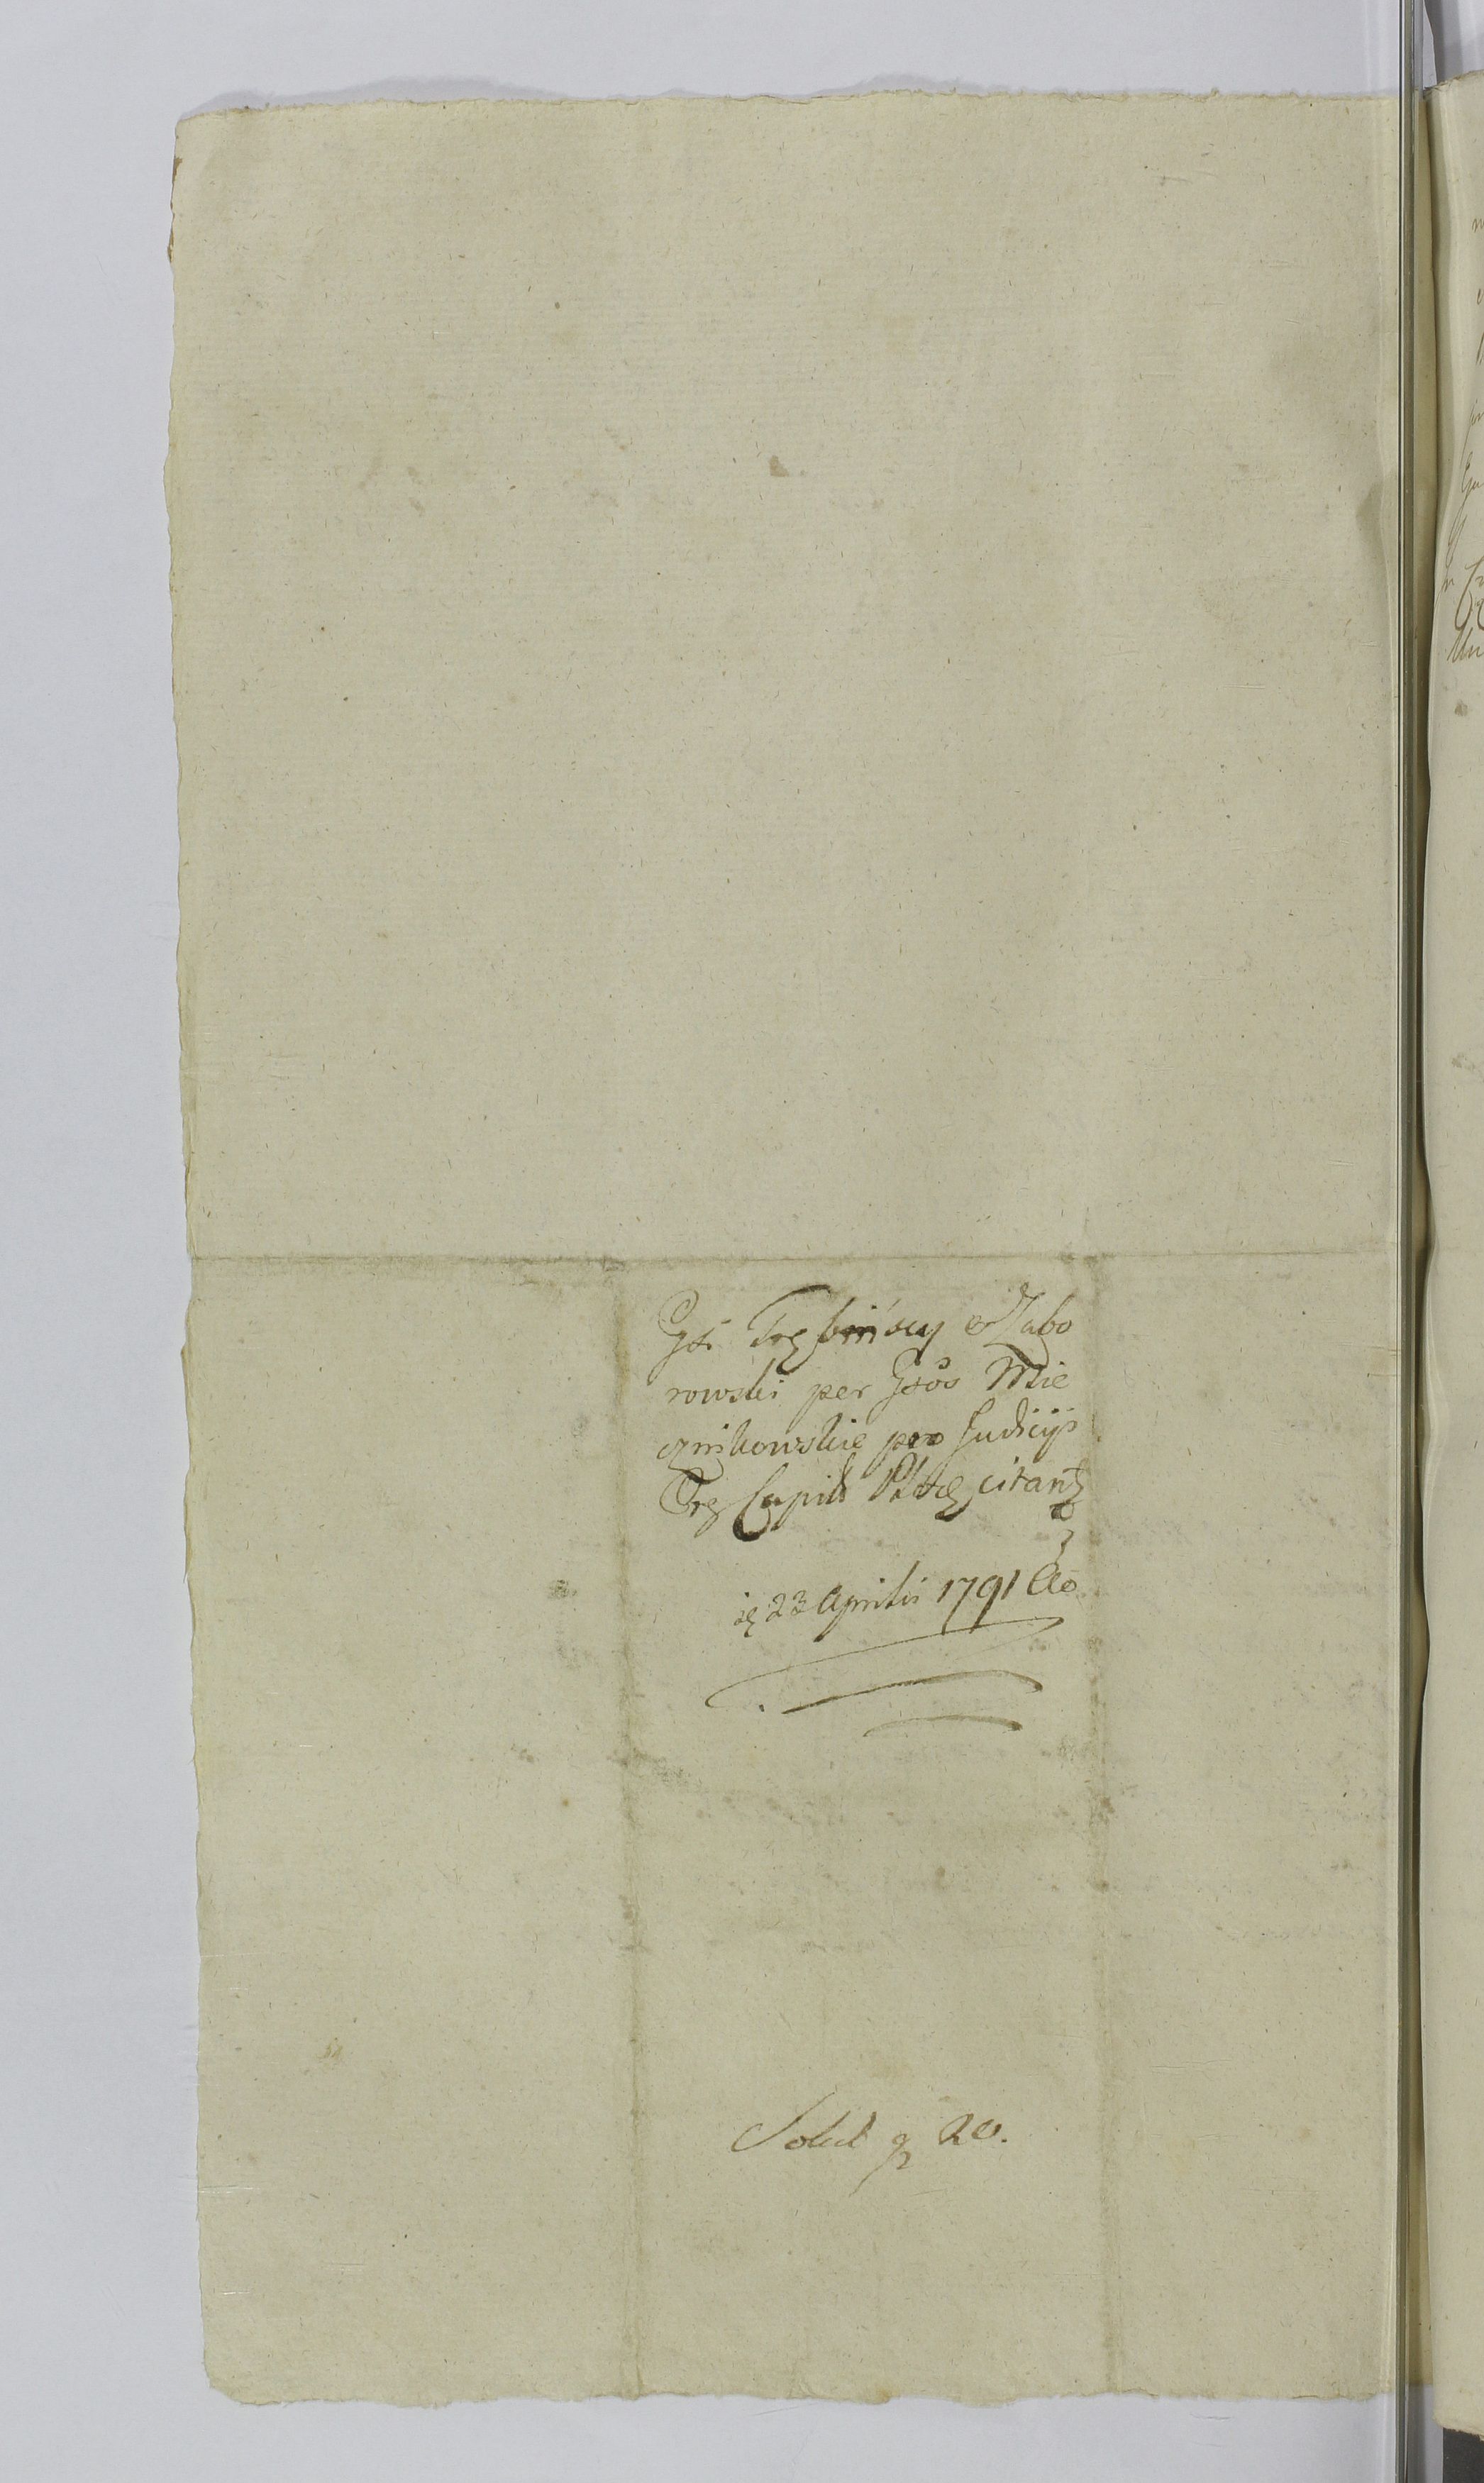 Gsi Trębińscy et Zabo
rowski per Gsos Mie
cznikowskie pro Judicijs
Trę Capit citant
23 Aprilis 1791 Ao
Solut g 20.